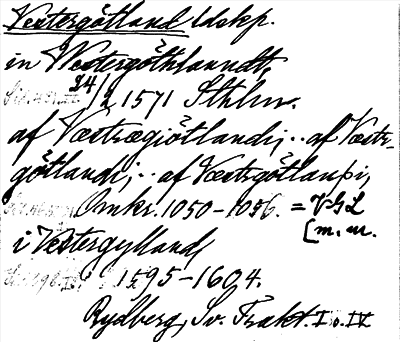 Vestergötland ldskp.
in Westergöthlanndt,
24/2 1571 Sthlm.
af Væstrægiötlandi; .. af Væstr-
götlandi; .. af Væstrgötlanþi,
Omkr. 1050-1056. = VGL
[m.m.
i Vestergylland,
1595-1604.
Rydberg, Sv. Trakt. I o. IV